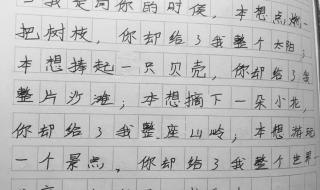 我是向你的时候，本想点燃
把树枝，你却给了我整个太阳；
本想捧起一只贝壳，你却给了我
整片沙滩；本想摘下一朵小花，
你却给了我整座山岭；本想游玩
一个景点，你却给了我整个世界